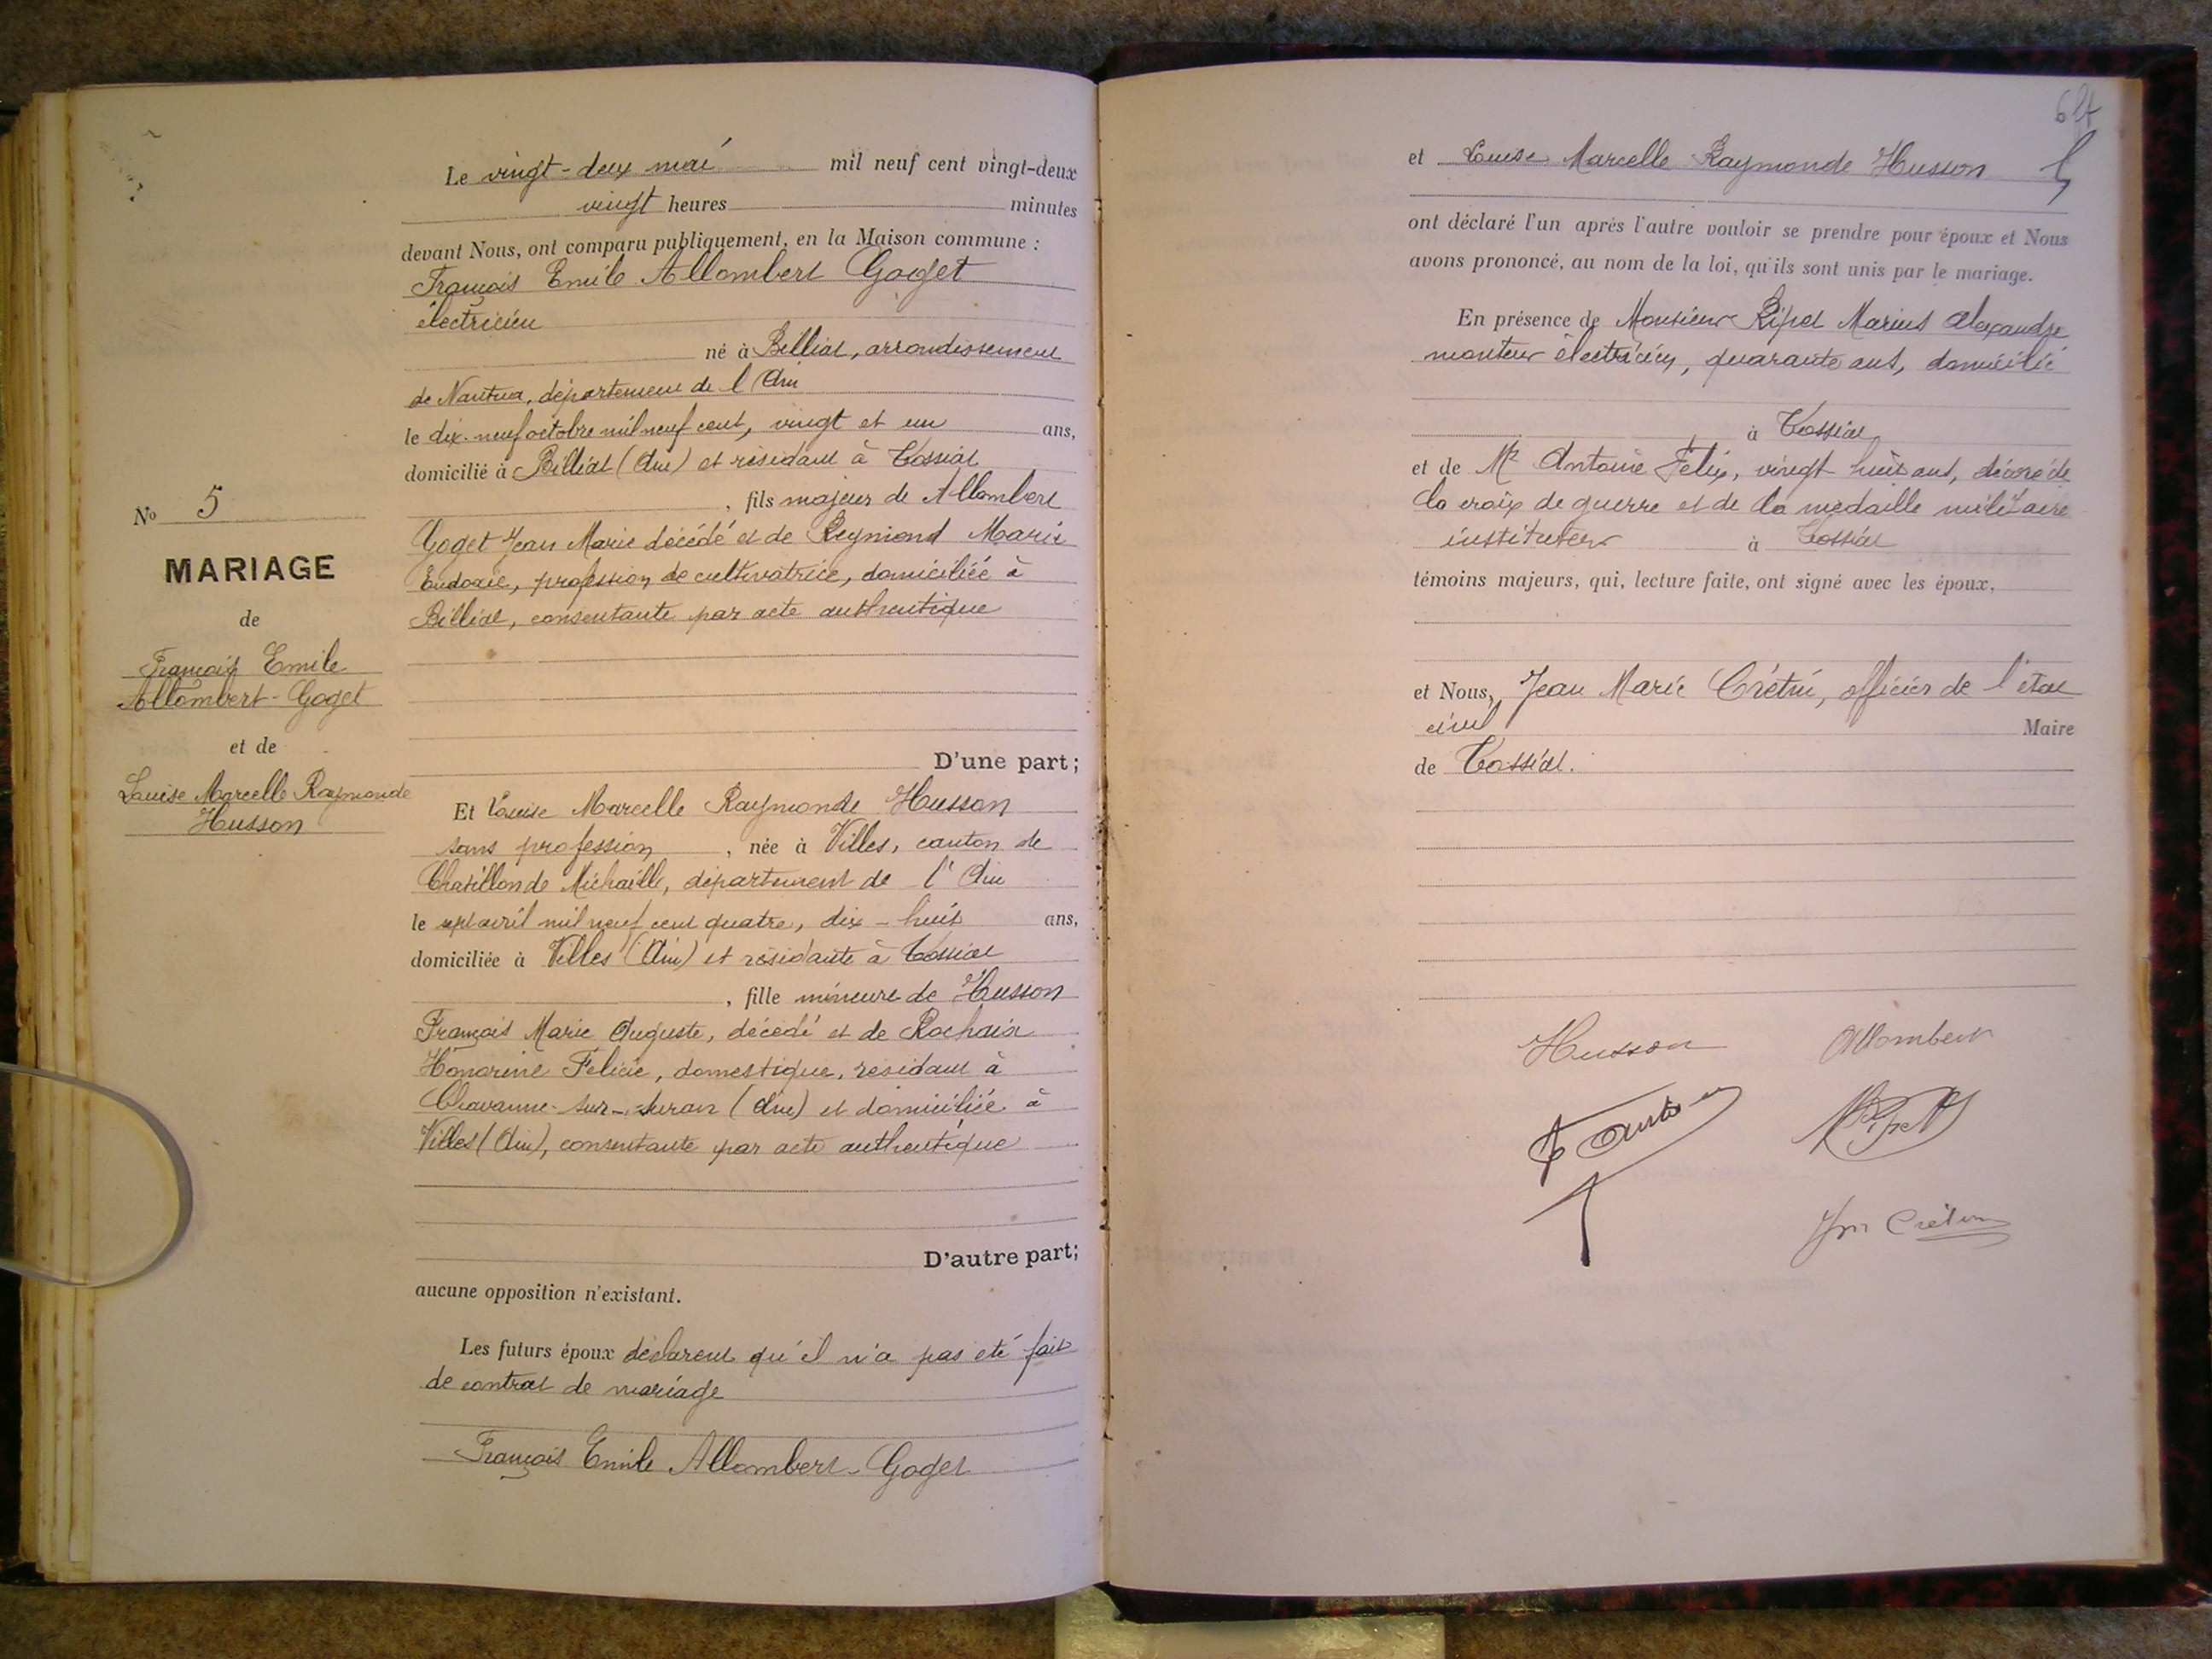 No 5
MARIAGE
de
François Emile
Allombert-Goget
et de
Louise Marcelle Raymonde
Husson
Le vingt-deux mai mil neuf cent vingt-deux
vingt heures minutes
devant Nous, ont comparu publiquement, en la Maison commune :
François Emile Allombert Goget
électricien
né à Billiat, arrondissement
de Nantua, département de l'Ain
le dix-neuf octobre mil neuf cent, vingt et un ans,
domicilié à Billiat (Ain) et résidant à Tossiat
, fils majeur de Allombert
Goget Jean Marie décédé et de Reymond Marie
Eudoxie, profession de cultivatrice, domiciliée à
Billiat, consentante par acte authentique
D'une part;
Et Louise Marcelle Raymonde Husson
sans profession , née à Villes, canton de
Chatillon de Michaille, département de l'Ain
le sept avril mil neuf cent quatre, dix-huit ans,
domiciliée à Villes (Ain) et résidante à Tossiat
, fille mineure de Husson
François Marie Auguste, décédé et de Rochaix
Honorine Félicie, domestique, résidant à
Chavanne-sur-Suran (Ain) et domiciliée à
Villes (Ain), consentante par acte authentique
D'autre part;
aucune opposition n'existant.
Les futurs époux déclarent qu'il n'a pas été fait
de contrat de mariage
François Emile Allombert-Goget
et Louise Marcelle Raymonde Husson
ont déclaré l'un après l'autre vouloir se prendre pour époux et Nous
avons prononcé, au nom de la loi, qu'ils sont unis par le mariage.
En présence de Monsieur Ripet Marius Alexandre
monteur électricien, quarante ans, domicilié
à Tossiat
et de Mr Antoine Félix, vingt huit ans, décoré de
la croix de guerre et de la médaille militaire
instituteur à Tossiat
témoins majeurs, qui, lecture faite, ont signé avec les époux,
et Nous, Jean Marie Crétin, officier de l'état
civil Maire
de Tossiat.
Husson Allombert
Ripet
Jm Crétin